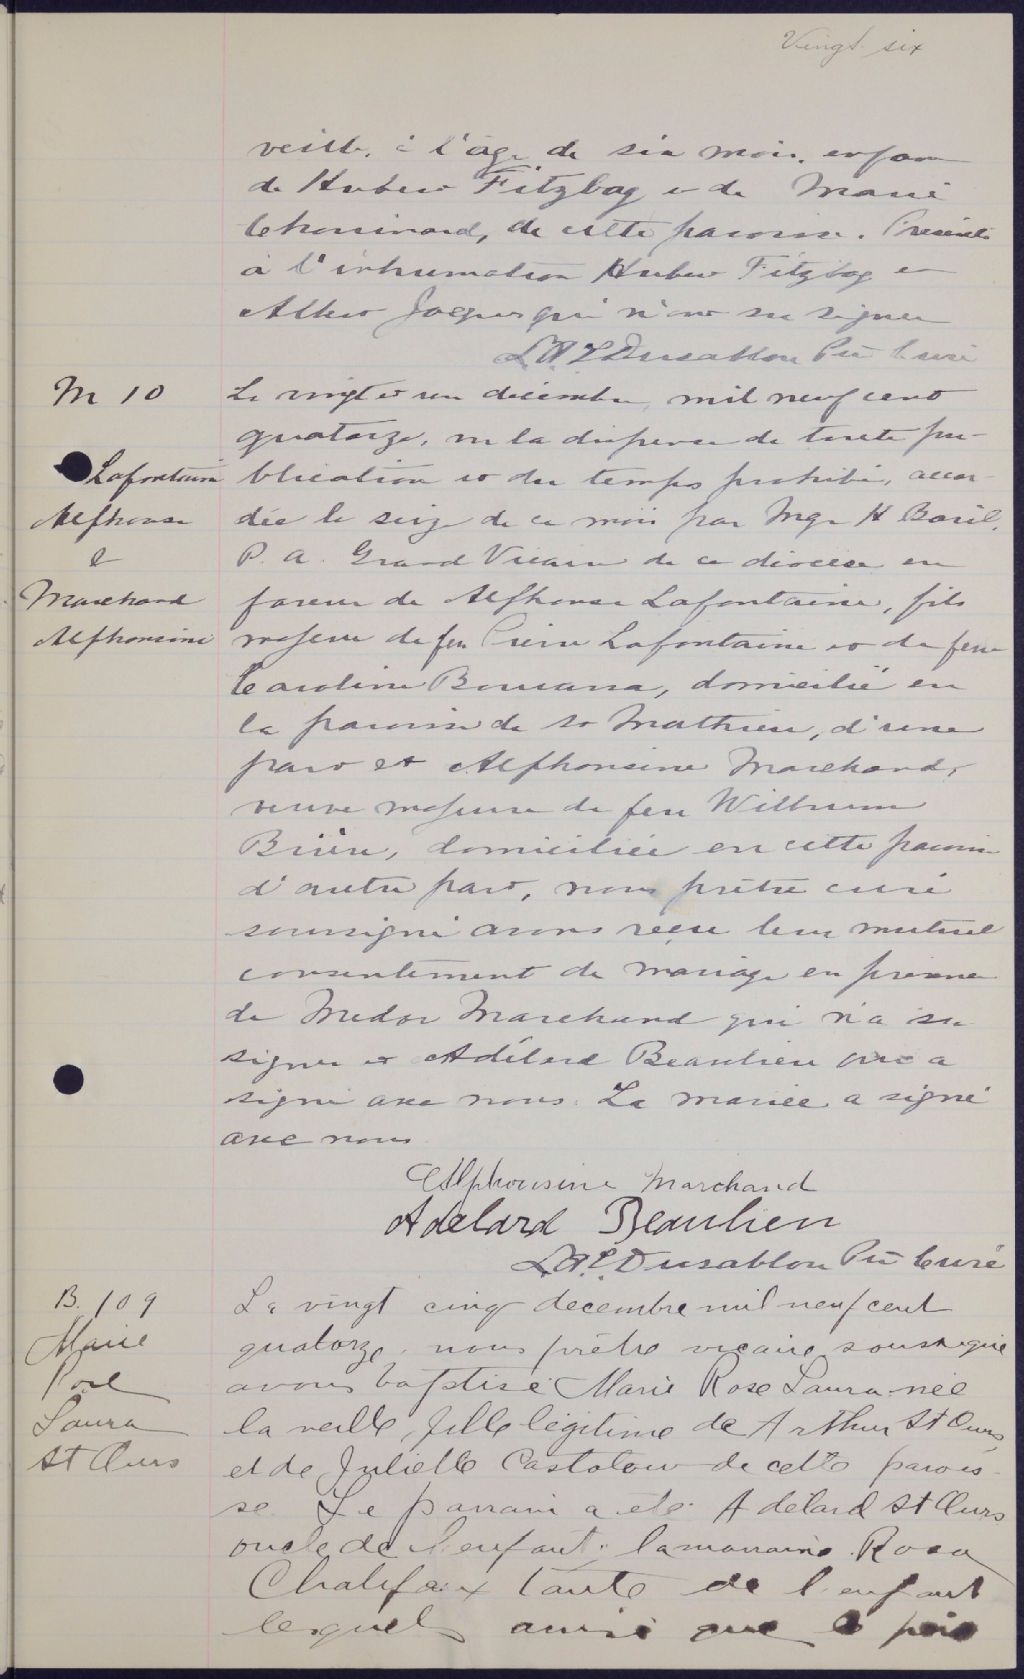 Vingt six
veille, à l'âge de six mois, enfant
de Hubert Fitzbag et de Marie
Chouinard, de cette paroisse. Présents
à l'inhumation Hubert Fitzbag et
Albert Jacques qui n'ont su signer
Dusablon Ptre Curé
M 10
Lafontaine
Alphonse
&
Marchand
Alphonsine
Le vingt et un décembre, mil neuf cent
quatorze, vu la dispense de toute pu-
blication et du temps prohibé, accor-
dée le seize de ce mois par Mgr H Baril,
P. A. Grand Vicaire de ce diocèse en
faveur de Alphonse Lafontaine, fils
majeur de feu Pierre Lafontaine et de feue
Caroline Bournassa, domicilié en
la paroisse de St Mathieu, d'une
part et Alphonsine Marchand,
veuve majeure de feu
Brière, domiciliée en cette paroisse
d'autre part, nous prêtre curé
soussigné avons reçu leur mutuel
consentement de mariage en présence
de Médor Marchand qui n'a su
signer et Adélard Beaulieu qui a
signé avec nous. La mariée a signé
avec nous
Alphonsine Marchand
Adelard Beaulieu
Dusablon Ptre Curé
B. 109
Marie
Rose
Laura
St Ours
Le vingt cinq decembre mil neuf cent
quatorze, nous prêtre vicaire soussigné
avons baptisé Marie Rose Laura née
la veille, fille légitime de Arthur St Ours,
et de Juliette de cette parois-
se. Le parrain a été Adélard St Ours
oncle de l'enfant; la marraine Rosa
Chalifaux tante de l'enfant
lesquels ainsi que le père